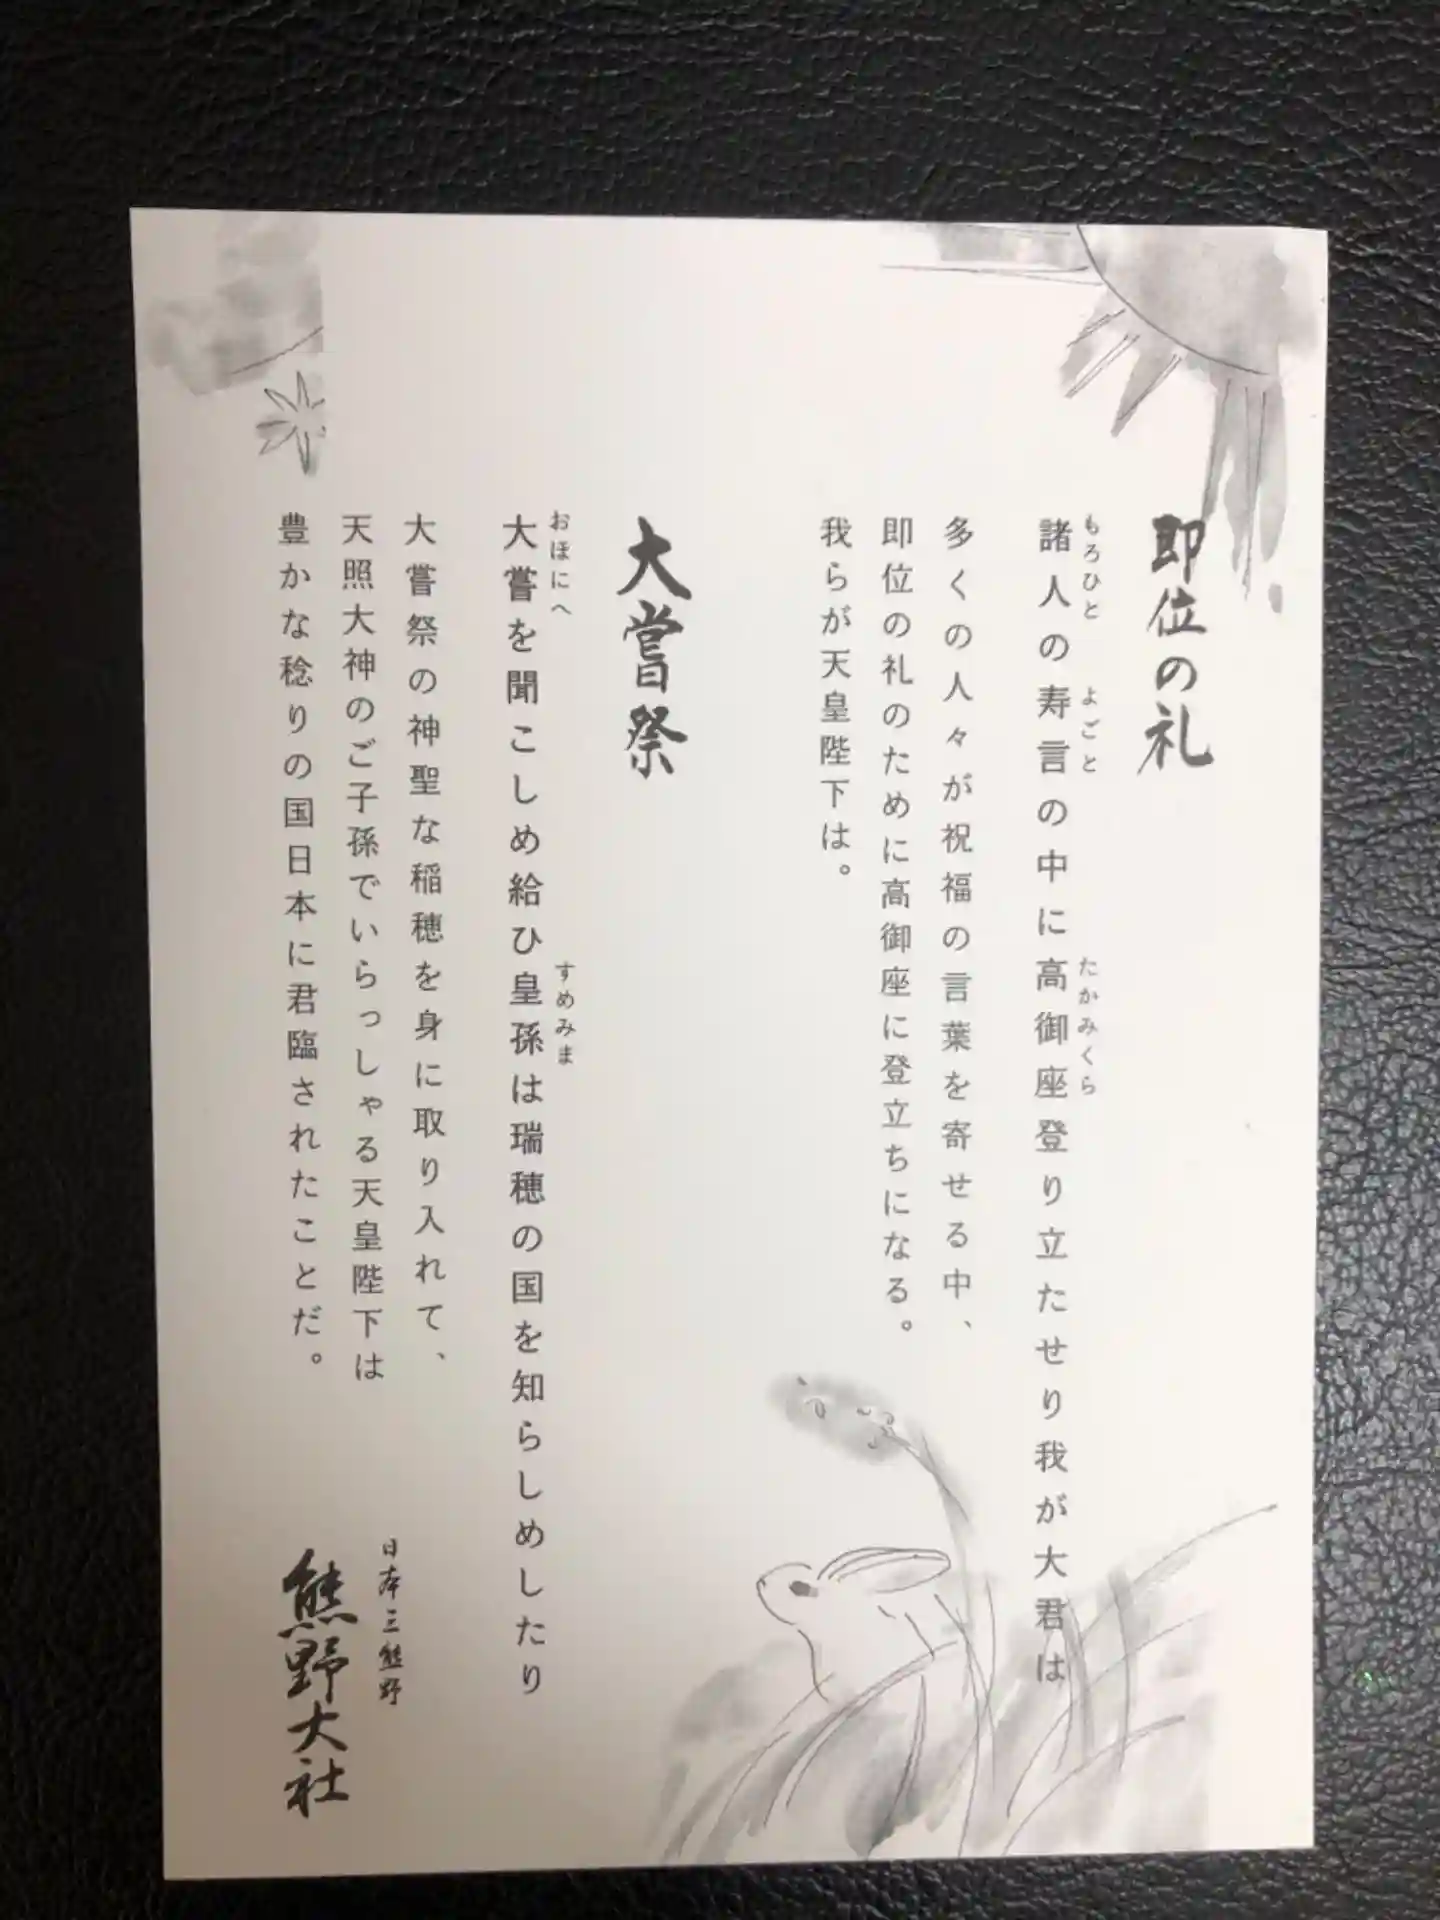 即位の礼
諸人の寿言の中に高御座登り立たせり我が大君は
もろひと
よごと
たかみくら
多くの人々が祝福の言葉を寄せる中、
即位の礼のために高御座に登立ちになる。
我らが天皇陛下は。
大嘗祭
大嘗を聞こしめ給ひ皇孫は瑞穂の国を知らしめしたり
おほにへ
すめみま
大嘗祭の神聖な稲穂を身に取り入れて、
天照大神のご子孫でいらっしゃる天皇陛下は
豊かな稔りの国日本に君臨されたことだ。
日本三熊野
熊野大社